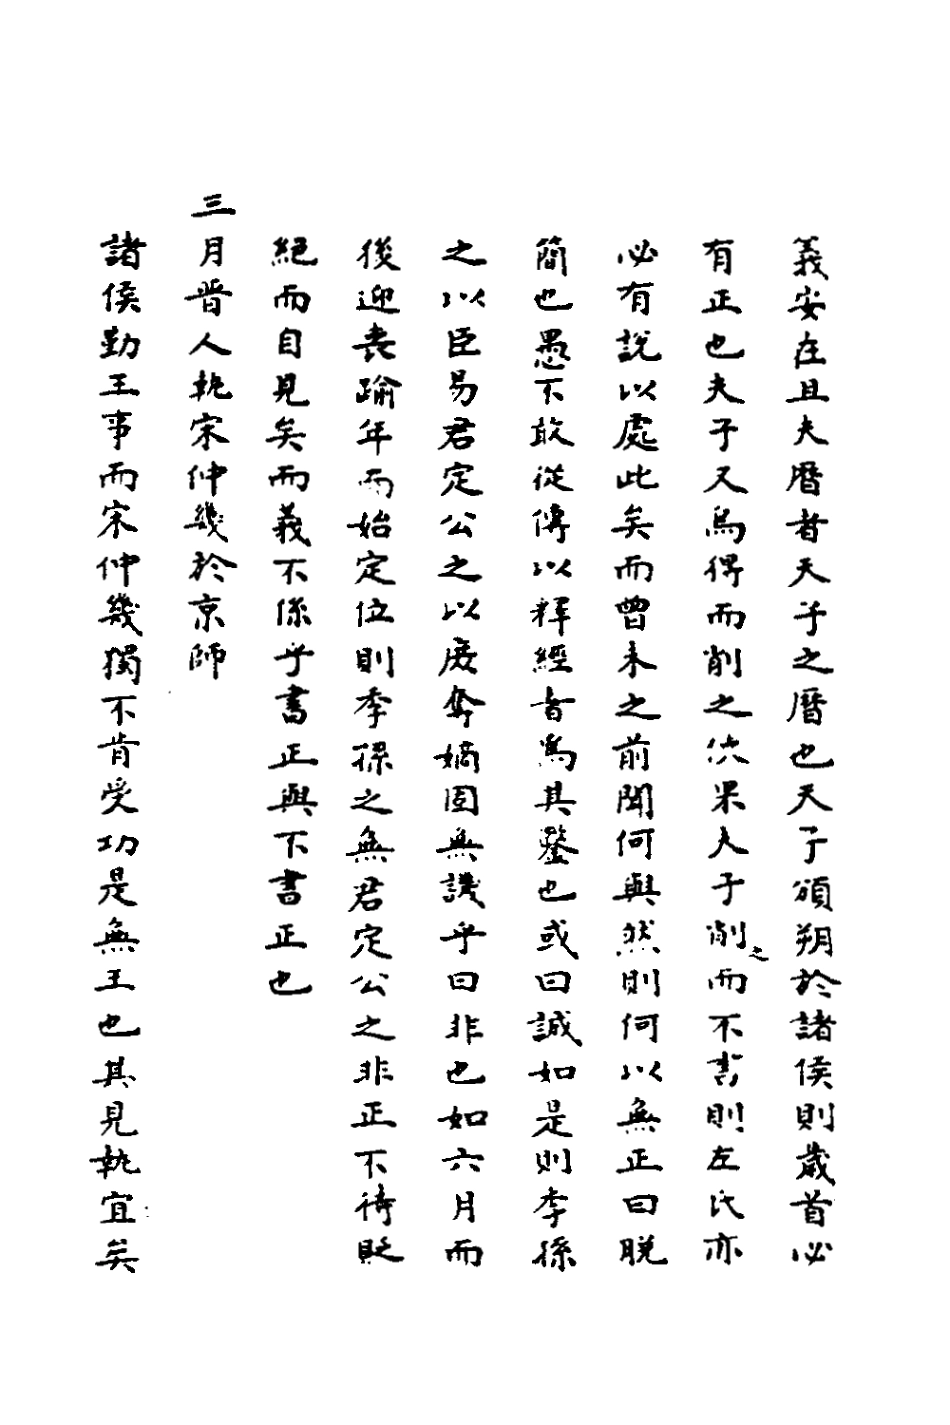 義安在且夫曆者天子之曆也天子頒朔於諸侯則歲首必
有正也夫子又焉得而削之哉果夫子削之而不書則左氏亦
必有說以處此矣而曾未之前聞何與然則何以無正曰脫
簡也愚不敢從傳以釋經者為其鑿也或曰誠如是則季孫
之以臣易君定公之以庶奪嫡固無譏乎曰非也如六月而
後迎喪踰年而始定位則季孫之無君定公之非正不待貶
絕而自見矣而義不係乎書正與不書正也
三月晉人執宋仲幾於京師
諸侯勤王事而宋仲幾獨不肯受功是無王也其見執宜矣